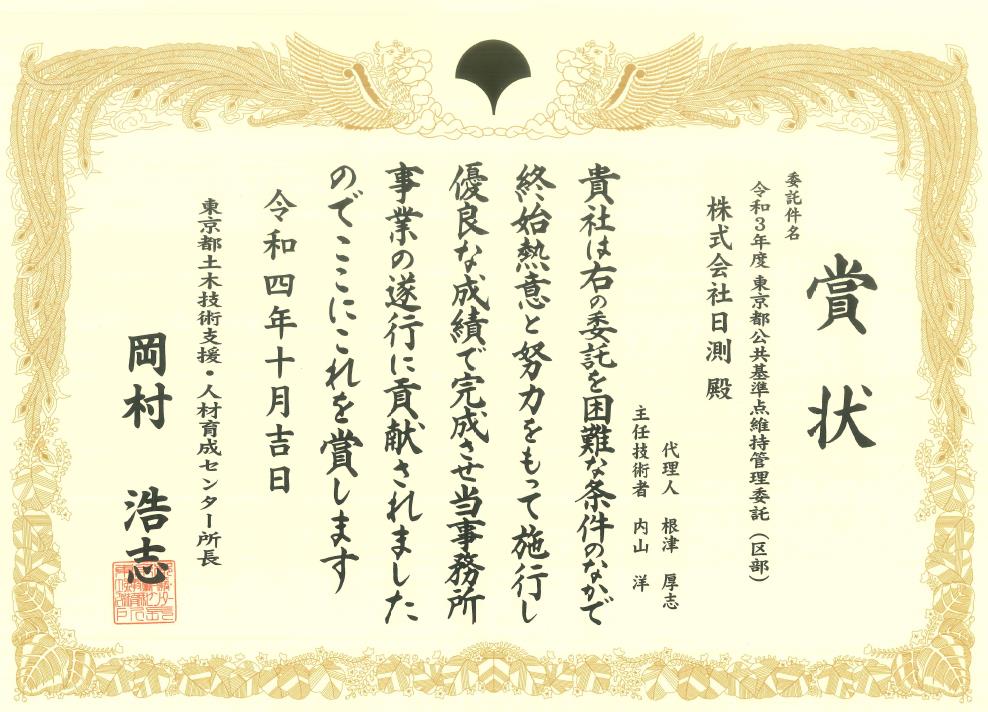 賞状
委託件名
令和3年度 東京都公共基準点維持管理委託（区部）
株式会社日測 殿
代理人 根津 厚志
主任技術者 内山 洋
貴社は右の委託を困難な条件のなかで
終始熱意と努力をもって施行し
優良な成績で完成させ当事務所
事業の遂行に貢献されました
のでここにこれを賞します
令和四年十月吉日
東京都土木技術支援・人材育成センター所長
岡村 浩志